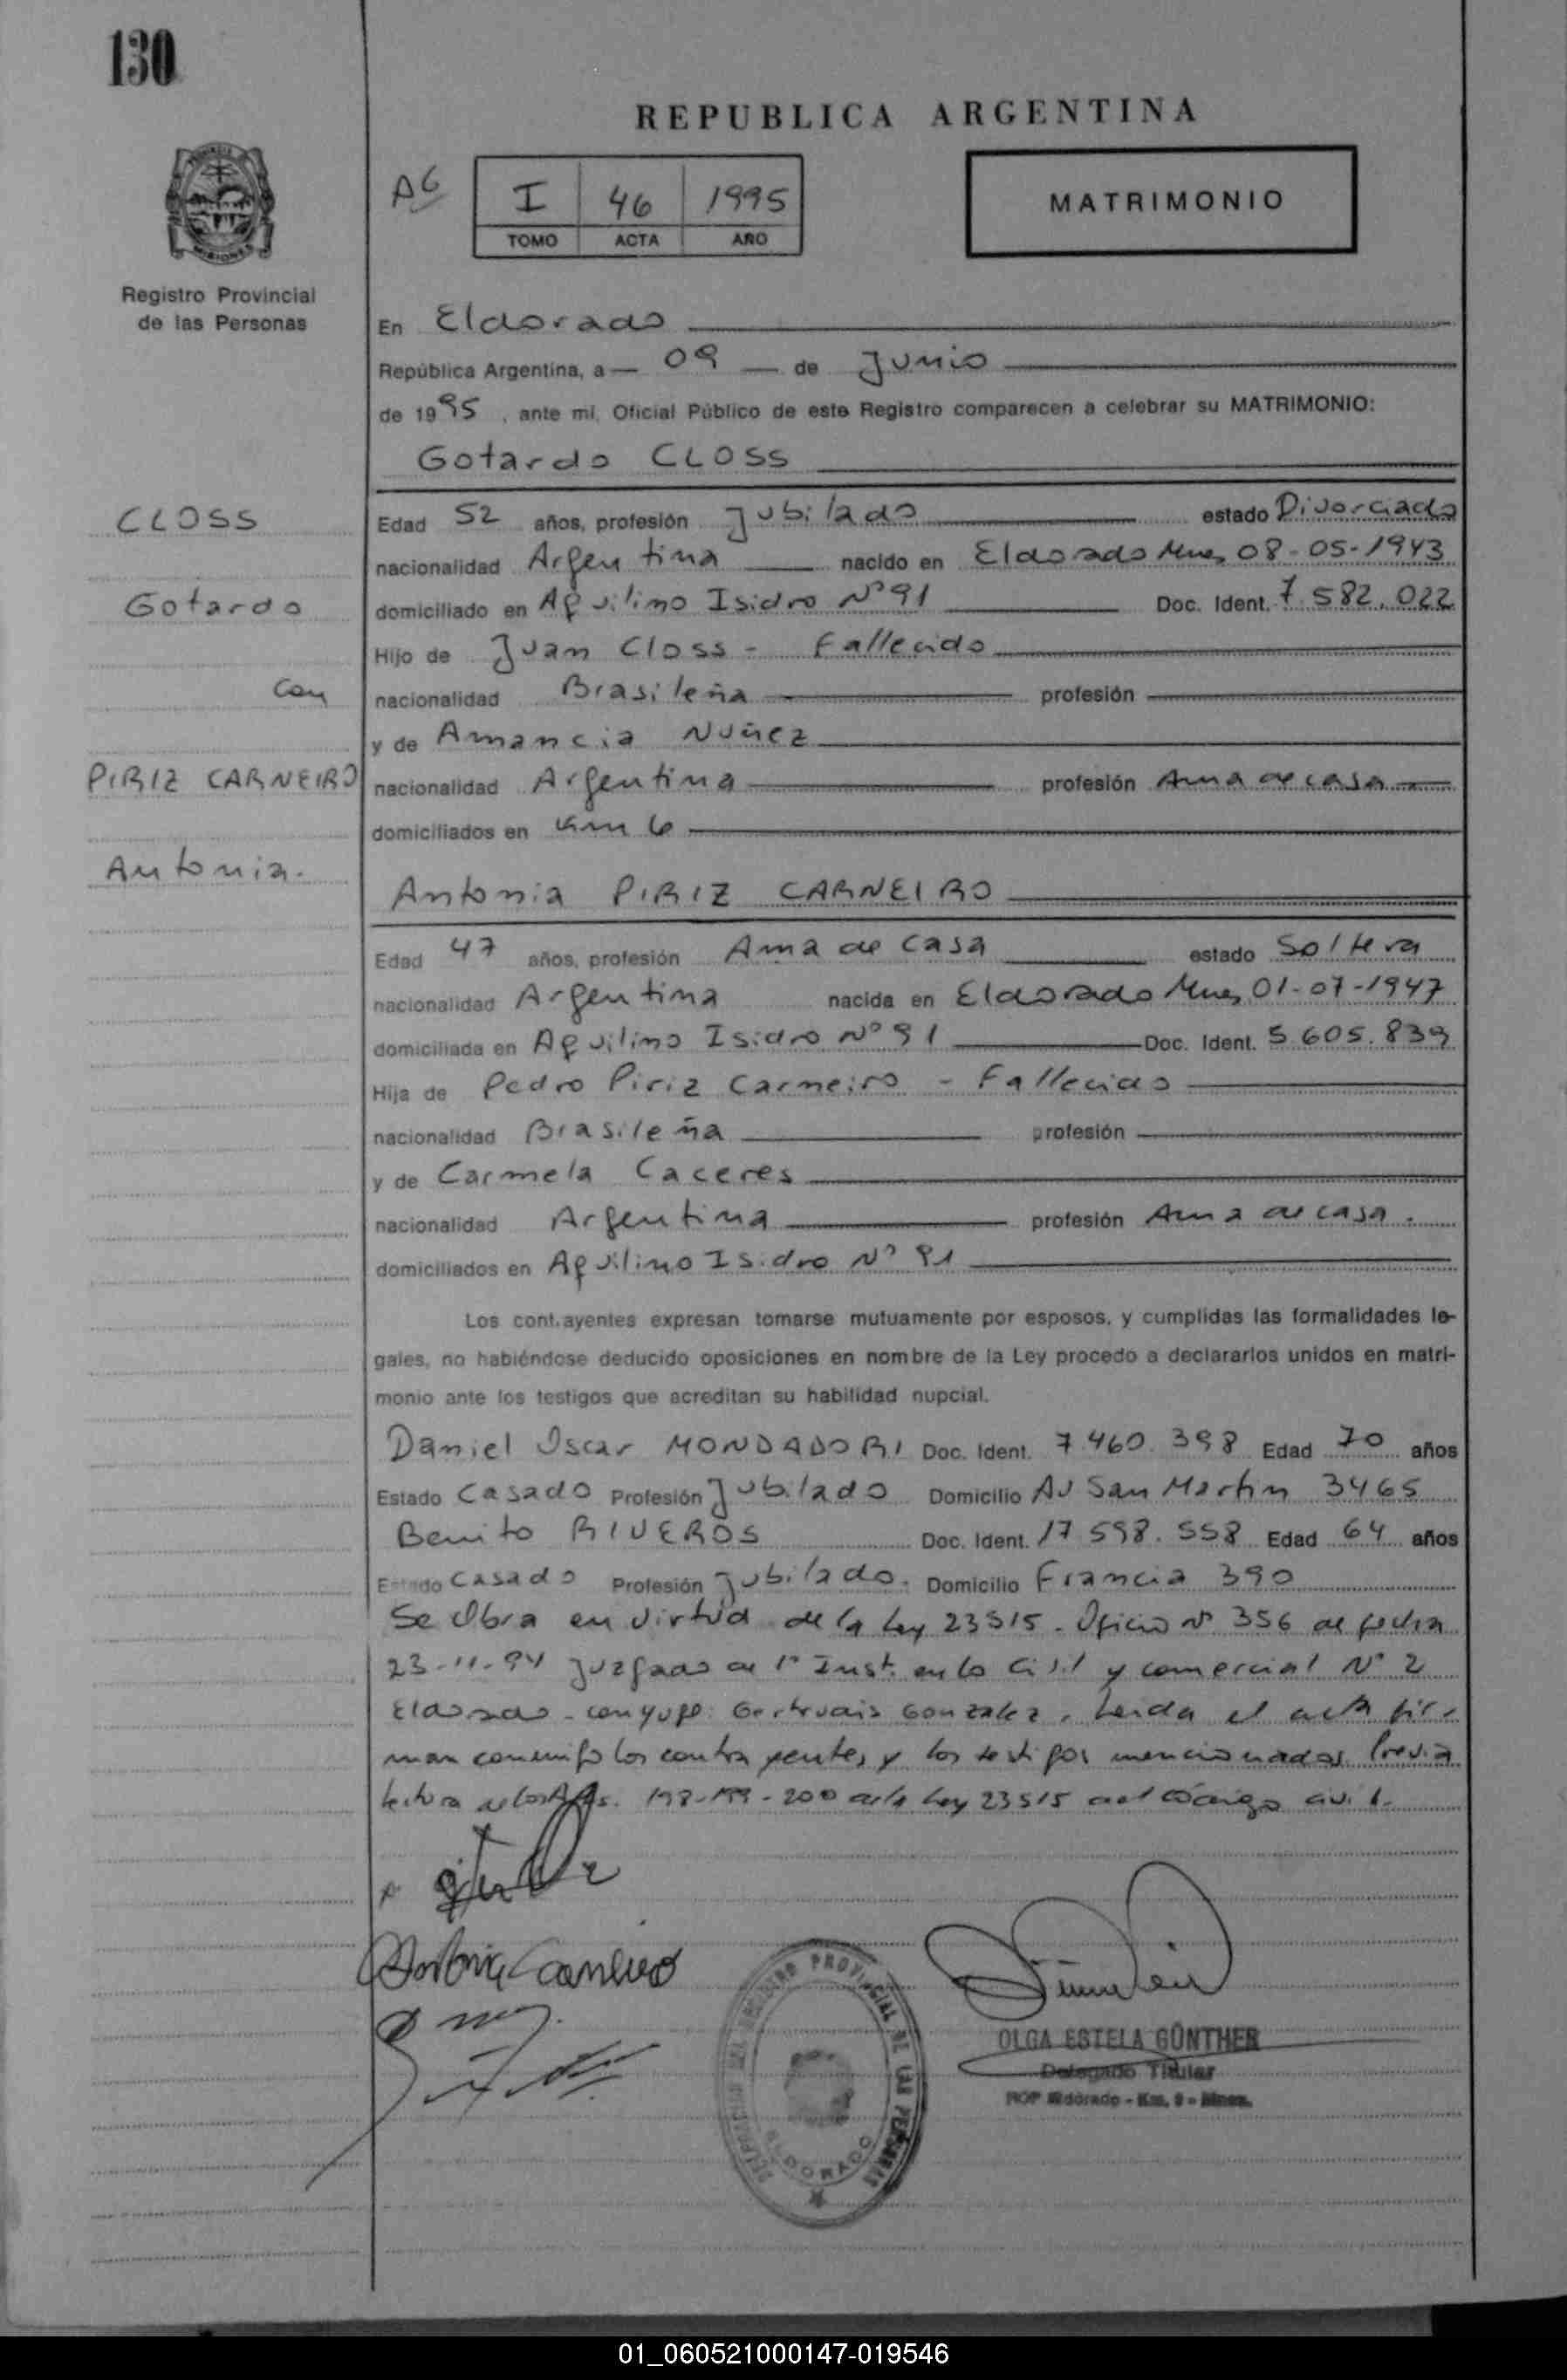 130
REPUBLICA ARGENTINA
A6
I 46 1995
TOMO ACTA AÑO
MATRIMONIO
PROVINCIA DE
MISIONES
Registro Provincial
de las Personas
En Eldorado
República Argentina, a 09 de Junio
de 1995, ante mí, Oficial Público de este Registro comparecen a celebrar su MATRIMONIO:
Gotardo CLOSS
CLOSS
Gotardo
con
PIRIZ CARNEIRO
Antonia.
Edad 52 años, profesión Jubilado estado Divorciado
nacionalidad Argentina nacido en Eldorado Mnes 08-05-1943
domiciliado en Aquilino Isidro Nº 91 Doc. Ident. 7.582.022
Hijo de Juan Closs - Fallecido
nacionalidad Brasileña profesión
y de Amancia Nuñez
nacionalidad Argentina profesión Ama de casa
domiciliados en Km 6
Antonia PIRIZ CARNEIRO
Edad 47 años, profesión Ama de casa estado Soltera
nacionalidad Argentina nacida en Eldorado Mnes 01-07-1947
domiciliada en Aquilino Isidro Nº 91 Doc. Ident. 5.605.839
Hija de Pedro Piriz Carneiro - Fallecido
nacionalidad Brasileña profesión
y de Carmela Caceres
nacionalidad Argentina profesión Ama de casa.
domiciliados en Aquilino Isidro Nº 91
Los contrayentes expresan tomarse mutuamente por esposos, y cumplidas las formalidades le-
gales, no habiéndose deducido oposiciones en nombre de la Ley procedo a declararlos unidos en matri-
monio ante los testigos que acreditan su habilidad nupcial.
Daniel Oscar MONDADORI Doc. Ident. 7.460.398 Edad 70 años
Estado Casado Profesión Jubilado Domicilio Av San Martin 3465
Benito RIVEROS Doc. Ident. 17.598.558 Edad 64 años
Estado Casado Profesión Jubilado. Domicilio Francia 390
Se obra en virtud de la Ley 23515 - Oficio Nº 356 de fecha
23-11-94 Juzgado de 1º Inst. en lo Civil y comercial Nº 2
Eldorado - conyuge: Gertrudis Gonzalez. Leida el acta fir-
man conmigo los contrayentes y los testigos mencionados. Previa
lectura de los Arts. 198-199-200 de la Ley 23515 del Código civil.
Antonia Carneiro
REGISTRO PROVINCIAL DE LAS PERSONAS
ELDORADO
OLGA ESTELA GÜNTHER
Delegado Titular
RGP Eldorado - Km. 9 - Mnes.
01_060521000147-019546